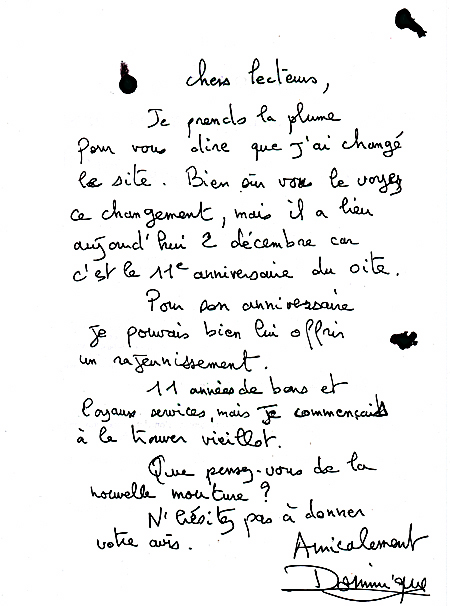 chers lecteurs,
Je prends la plume
pour vous dire que j'ai changé
le site. Bien sûr vous le voyez
ce changement, mais il a lieu
aujourd'hui 2 décembre car
c'est le 11e anniversaire du site.
Pour son anniversaire
je pouvais bien lui offrir
un rajeunissement.
11 années de bons et
loyaux services, mais je commençais
à le trouver vieillot.
Que pensez-vous de la
nouvelle mouture ?
N'hésitez pas à donner
votre avis.
Amicalement
Dominique